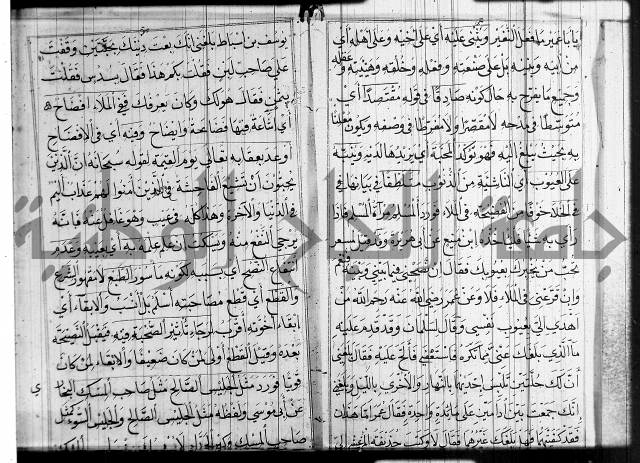 يا با عمير ما فعل النغير ويثنى عليه أي على أخيه وعلى أهله أي
من أبيه وبنيه بل على صنعته وفعله وخلقه وهيئته وعقله
وجميع ما يفرح به حال كونه صادقا في قوله مقتصدا أي
متوسطا في مدحه لا مقصرا ولا مفرطا في وصفه ويكون
به بحيث يبلغ اليه فهو يؤكد المحبة أي يزيدها لديه وينبه
على العيوب أي الناشئة من الذنوب متلطفا في بيانها في
في الخلا خوفا من الفضيحة في الملاء فورد المسلم مرآة المسلم فاذا
رأى به شيئا فلياخذه ابن منيع عن أبي هريرة وقد قيل لمسعر
تحب من يخبرك بعيوبك فقال ان نصحني فيما بيني وبينه فنعم
وان قرعني في الملاء فلا وعن عمر رضي الله عنه رحم الله من
اهدى الي بعيوب نفسي وقال لسلمان وقد قدم عليه
ما الذي بلغك عني مما تكره فاستعفى فالح عليه فقال بلغني
أن لك حلتين تلبس إحديهما بالنهار والأخرى بالليل وبلغني
انك جمعت بين ادامين على مائدة واحدة فقال عمر اما هذان
فقد كفيتهما فهل بلغك غيرهما فقال لا وكتب حذيفة المرعشي الى
يوسف بن اسباط بلغني انك بعت دينك بحبتين وقفت
على صاحب لبن فقلت بكم هذا فقال بسدس فقلت
بثمن فقال هو لك وكان يعرفك ففي الملاء افضاح
أي اشاعة فيها فضاحة وايضاح وفيه أي في الإفضاح
أوعد بعقابه تعالى يوم القيمة لقوله سبحانه ان الذين
يحبون أن تشيع الفاحشة في الذين آمنوا لهم عذاب اليم
في الدنيا والآخرة وهذا كله في عيب وهو غافل عنه فانه
يرجى النفع منه وسكت ان علم علمه به أي بعيبه وعدم
انتفاع النصح أي بسببه لكونه مأسور الطبع لا مقهور الشرع
والقطع أي قطع مصاحبته أسلم بل أنسب والابقاء أي
ابقاء أخوته أقرب لرجاء تأثير الصحبة فيه فيقبل النصيحة
بعده وقيل القطع أولى لمن كان ضعيفا والابقاء لمن كان
قويا فورد مثل الجليس الصالح مثل صاحب المسك البخا
ري
عن أبي موسى ولفظه مثل الجليس الصالح والجليس السوء كمثل
صاحب المسك وكير الحداد
جامعة النجاح الوطنية